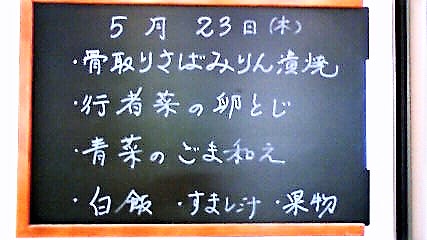 5月23日(木)
・骨取りさばみりん漬焼
・行者菜の卵とじ
・青菜のごま和え
・白飯 ・すまし汁 ・果物